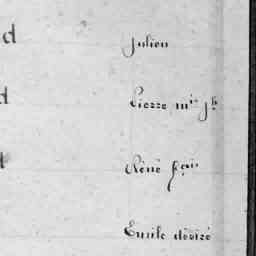 d Julien
d Pierre m.in j.h
d Réné f.ois
Emile désiré